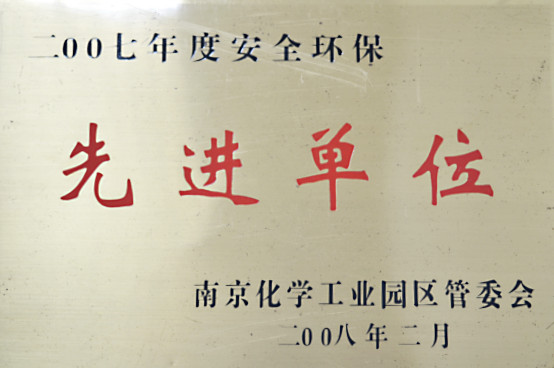 二00七年度安全环保
先进单位
南京化学工业园区管委会
二00八年二月